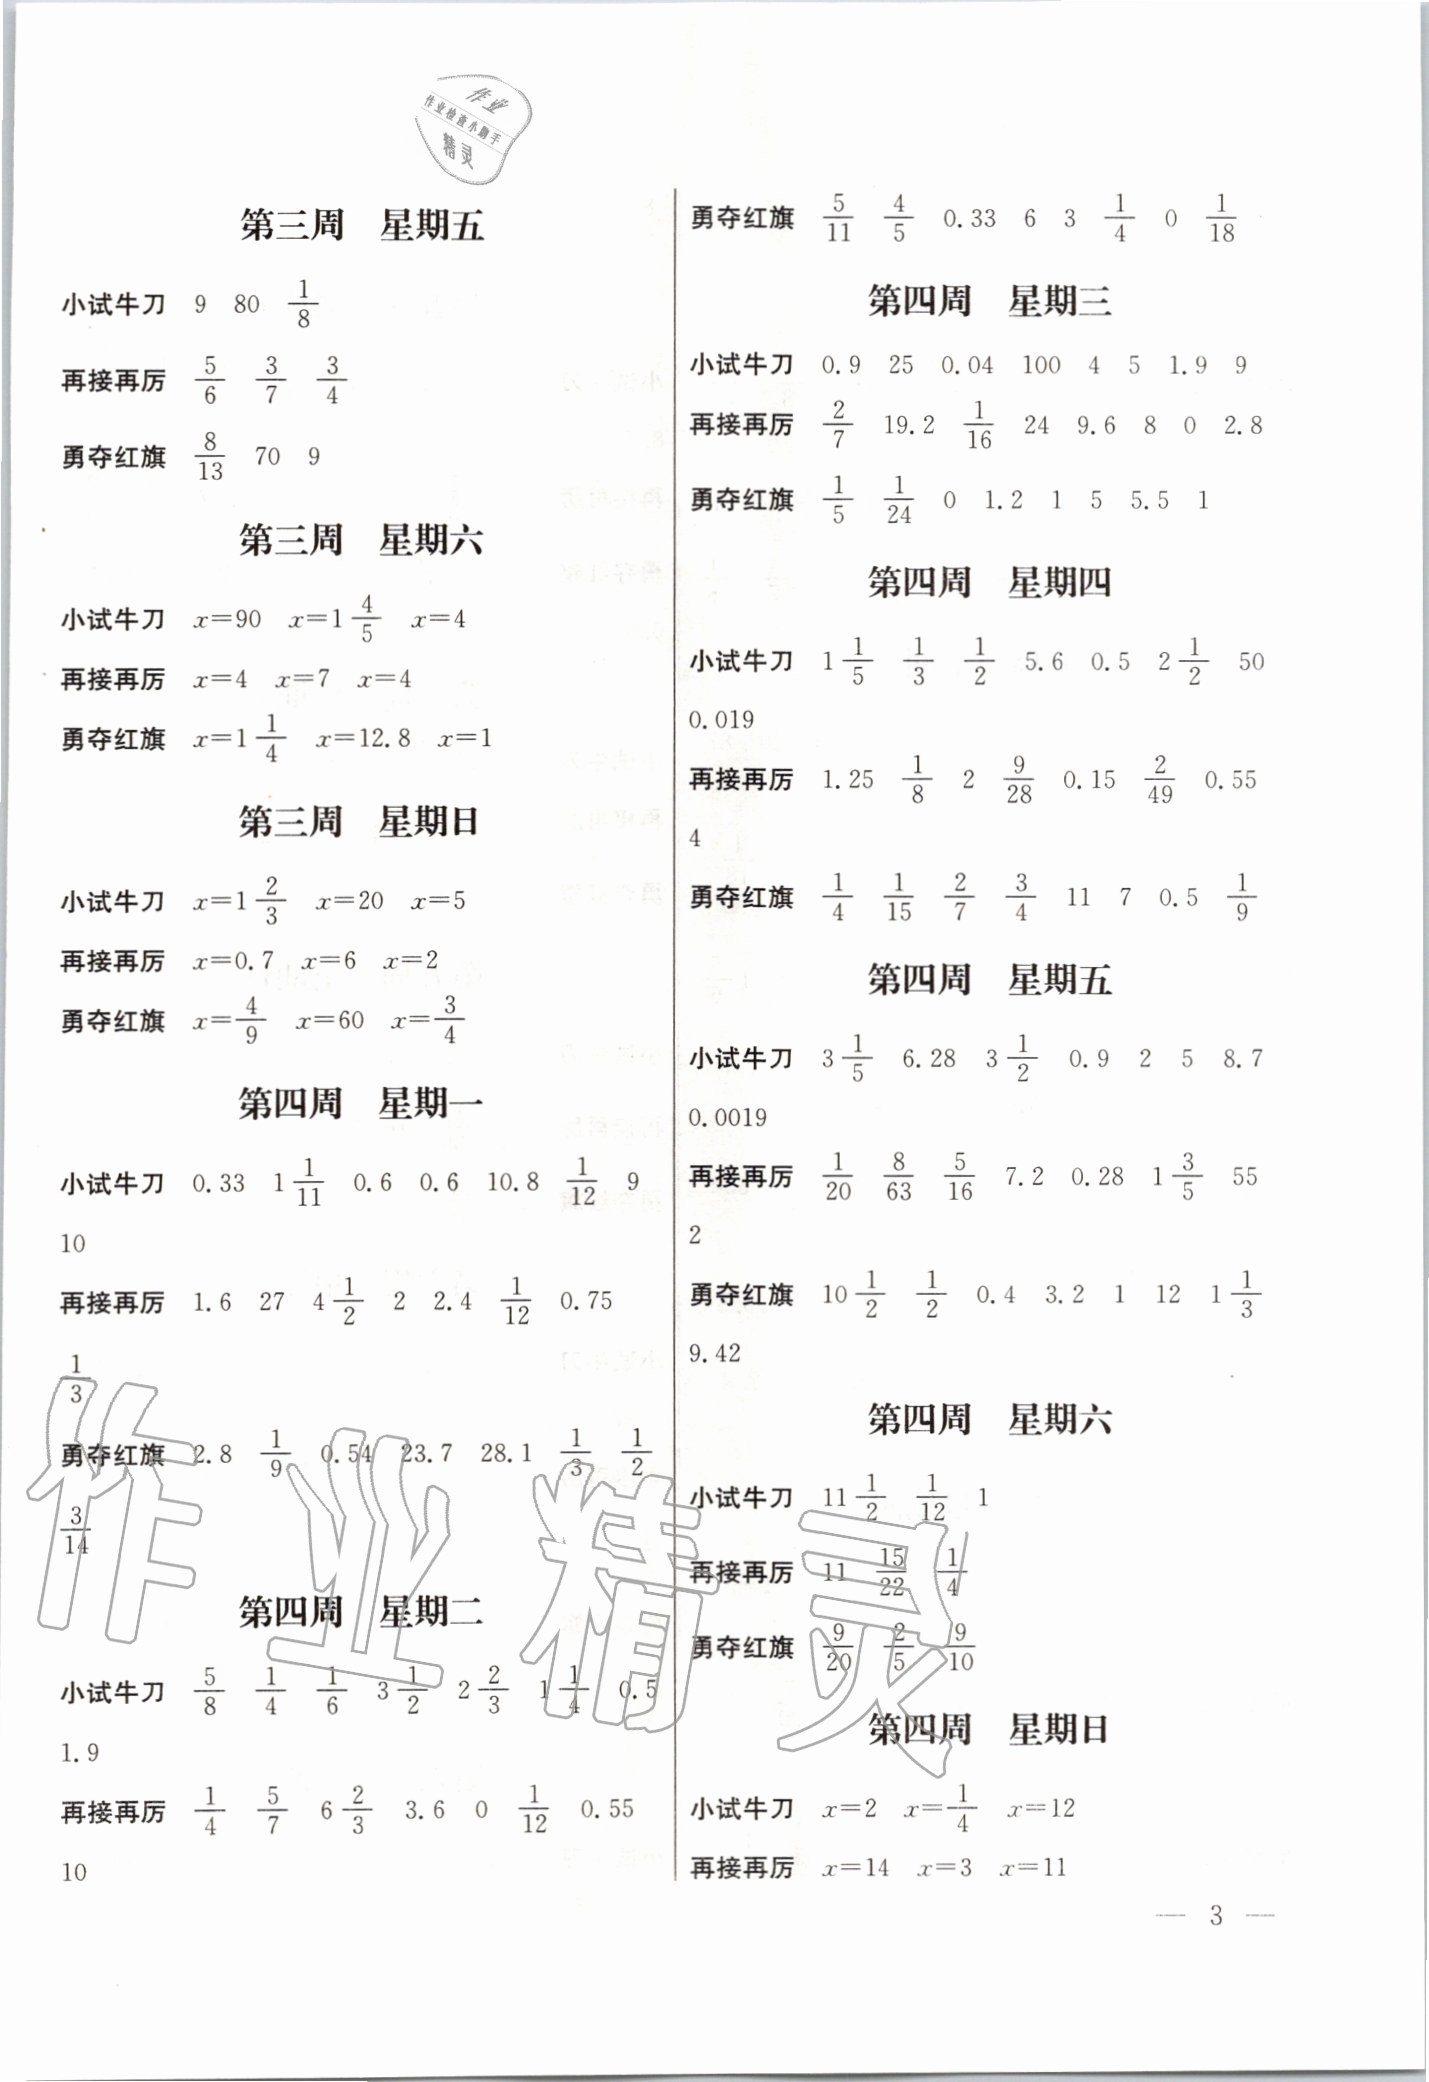 作业
作业检查小助手
精灵
第三周 星期五
小试牛刀 9 80 1/8
再接再厉 5/6 3/7 3/4
勇夺红旗 8/13 70 9
第三周 星期六
小试牛刀 x=90 x=1 4/5 x=4
再接再厉 x=4 x=7 x=4
勇夺红旗 x=1 1/4 x=12.8 x=1
第三周 星期日
小试牛刀 x=1 2/3 x=20 x=5
再接再厉 x=0.7 x=6 x=2
勇夺红旗 x=4/9 x=60 x=3/4
第四周 星期一
小试牛刀 0.33 1 1/11 0.6 0.6 10.8 1/12 9
10
再接再厉 1.6 27 4 1/2 2 2.4 1/12 0.75
1/3
勇夺红旗 2.8 1/9 0.54 23.7 28.1 1/3 1/2
3/14
第四周 星期二
小试牛刀 5/8 1/4 1/6 3 1/2 2 2/3 1 1/4 0.5
1.9
再接再厉 1/4 5/7 6 2/3 3.6 0 1/12 0.55
10
勇夺红旗 5/11 4/5 0.33 6 3 1/4 0 1/18
第四周 星期三
小试牛刀 0.9 25 0.04 100 4 5 1.9 9
再接再厉 2/7 19.2 1/16 24 9.6 8 0 2.8
勇夺红旗 1/5 1/24 0 1.2 1 5 5.5 1
第四周 星期四
小试牛刀 1 1/5 1/3 1/2 5.6 0.5 2 1/2 50
0.019
再接再厉 1.25 1/8 2 9/28 0.15 2/49 0.55
4
勇夺红旗 1/4 1/15 2/7 3/4 11 7 0.5 1/9
第四周 星期五
小试牛刀 3 1/5 6.28 3 1/2 0.9 2 5 8.7
0.0019
再接再厉 1/20 8/63 5/16 7.2 0.28 1 3/5 55
2
勇夺红旗 10 1/2 1/2 0.4 3.2 1 12 1 1/3
9.42
第四周 星期六
小试牛刀 11 1/2 1/12 1
再接再厉 11 15/22 1/4
勇夺红旗 9/20 2/5 9/10
第四周 星期日
小试牛刀 x=2 x=1/4 x=12
再接再厉 x=14 x=3 x=11
— 3 —
作业精灵